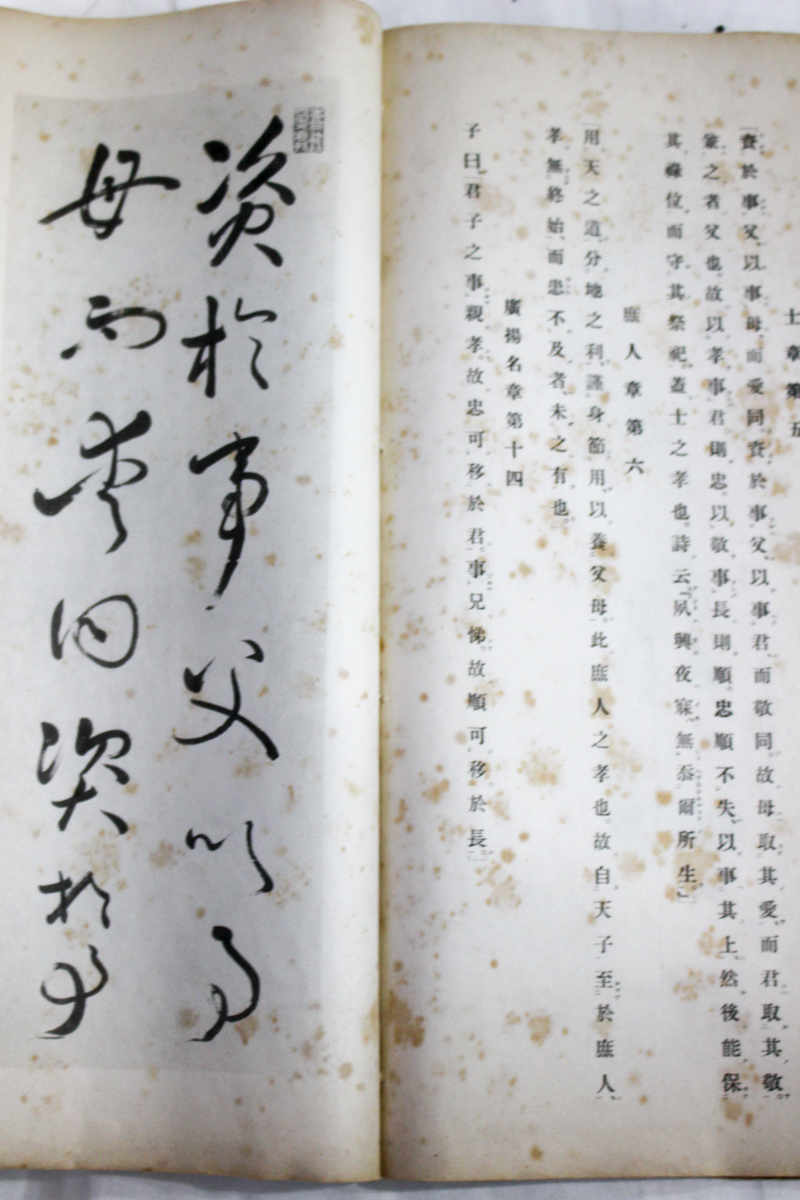 士章第五
「資於事父、以事母、而愛同。資於事父、以事君、而敬同。故母取其愛、而君取其敬。
兼之者父也。故以孝事君則忠。以敬事長則順。忠順不失、以事其上、然後能保
其祿位、而守其祭祀。蓋士之孝也。詩云『夙興夜寐、無忝爾所生。』」
庶人章第六
「用天之道、分地之利、謹身節用、以養父母。此庶人之孝也。故自天子至於庶人、
孝無終始、而患不及者、未之有也。
廣揚名章第十四
子曰。「君子之事親孝。故忠可移於君。事兄悌。故順可移於長。」
資於事父以事
母而愛同資於事